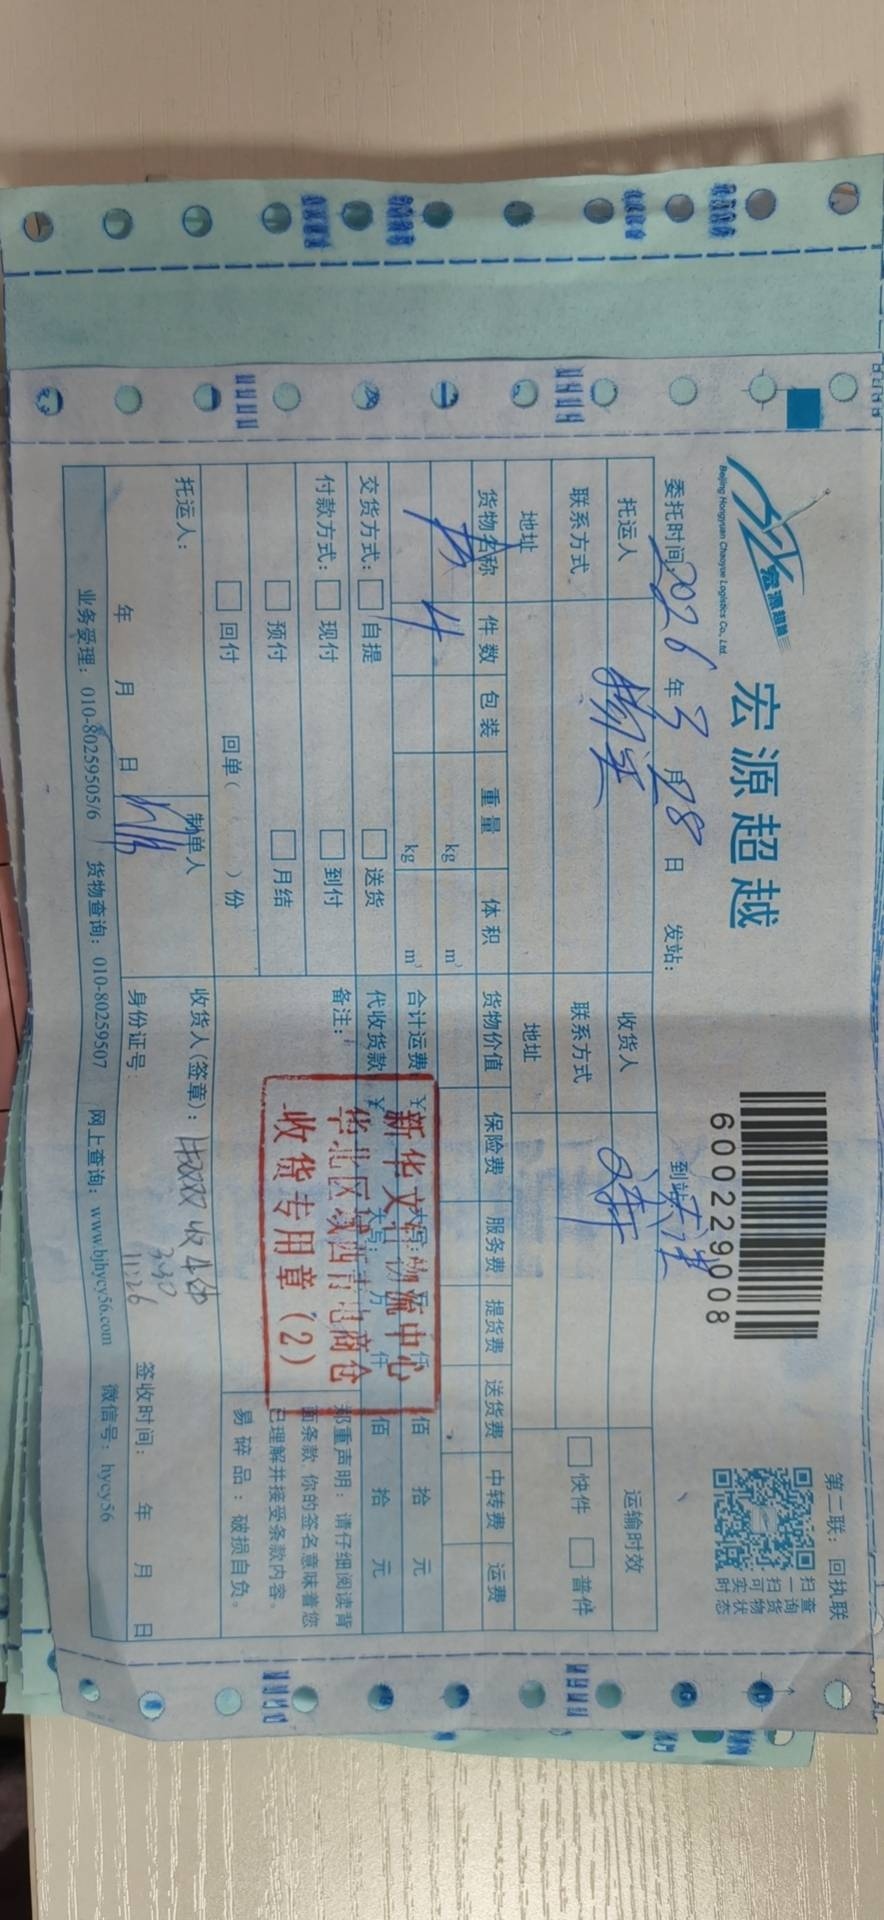 宏源超越
Beijing Hongyuan Chaoyue Logistics Co., Ltd.
宏源超越
600229008
第二联：回执联
扫一扫可查询货物实时状态
委托时间 2026 年 3 月 28 日 发站： 到站： 天津
托运人 收货人 运输时效
联系方式 联系方式 快件 普件
地址 地址
货物名称 件数 包装 重量 体积 货物价值 保险费 服务费 提货费 送货费 中转费 运费
kg m³
书 4 kg m³ 合计运费 ¥ 大写： 万 仟 佰 拾 元
交货方式： 自提 送货 代收货款 ¥ 大写： 万 仟 佰 拾 元
付款方式： 现付 到付 备注：
预付 月结
回付 回单（ ）份
郑重声明：请仔细阅读背面条款，你的签名意味着您已理解并接受条款内容。
易碎品：破损自负。
新华文轩物流中心
华北区域西青电商仓
收货专用章（2）
托运人： 制单人 收货人（签章）： 收4包
3.30
11:26
年 月 日 身份证号： 签收时间： 年 月 日
业务受理：010-80259505/6 货物查询：010-80259507 网上查询：www.bjhycy56.com 微信号：hycy56